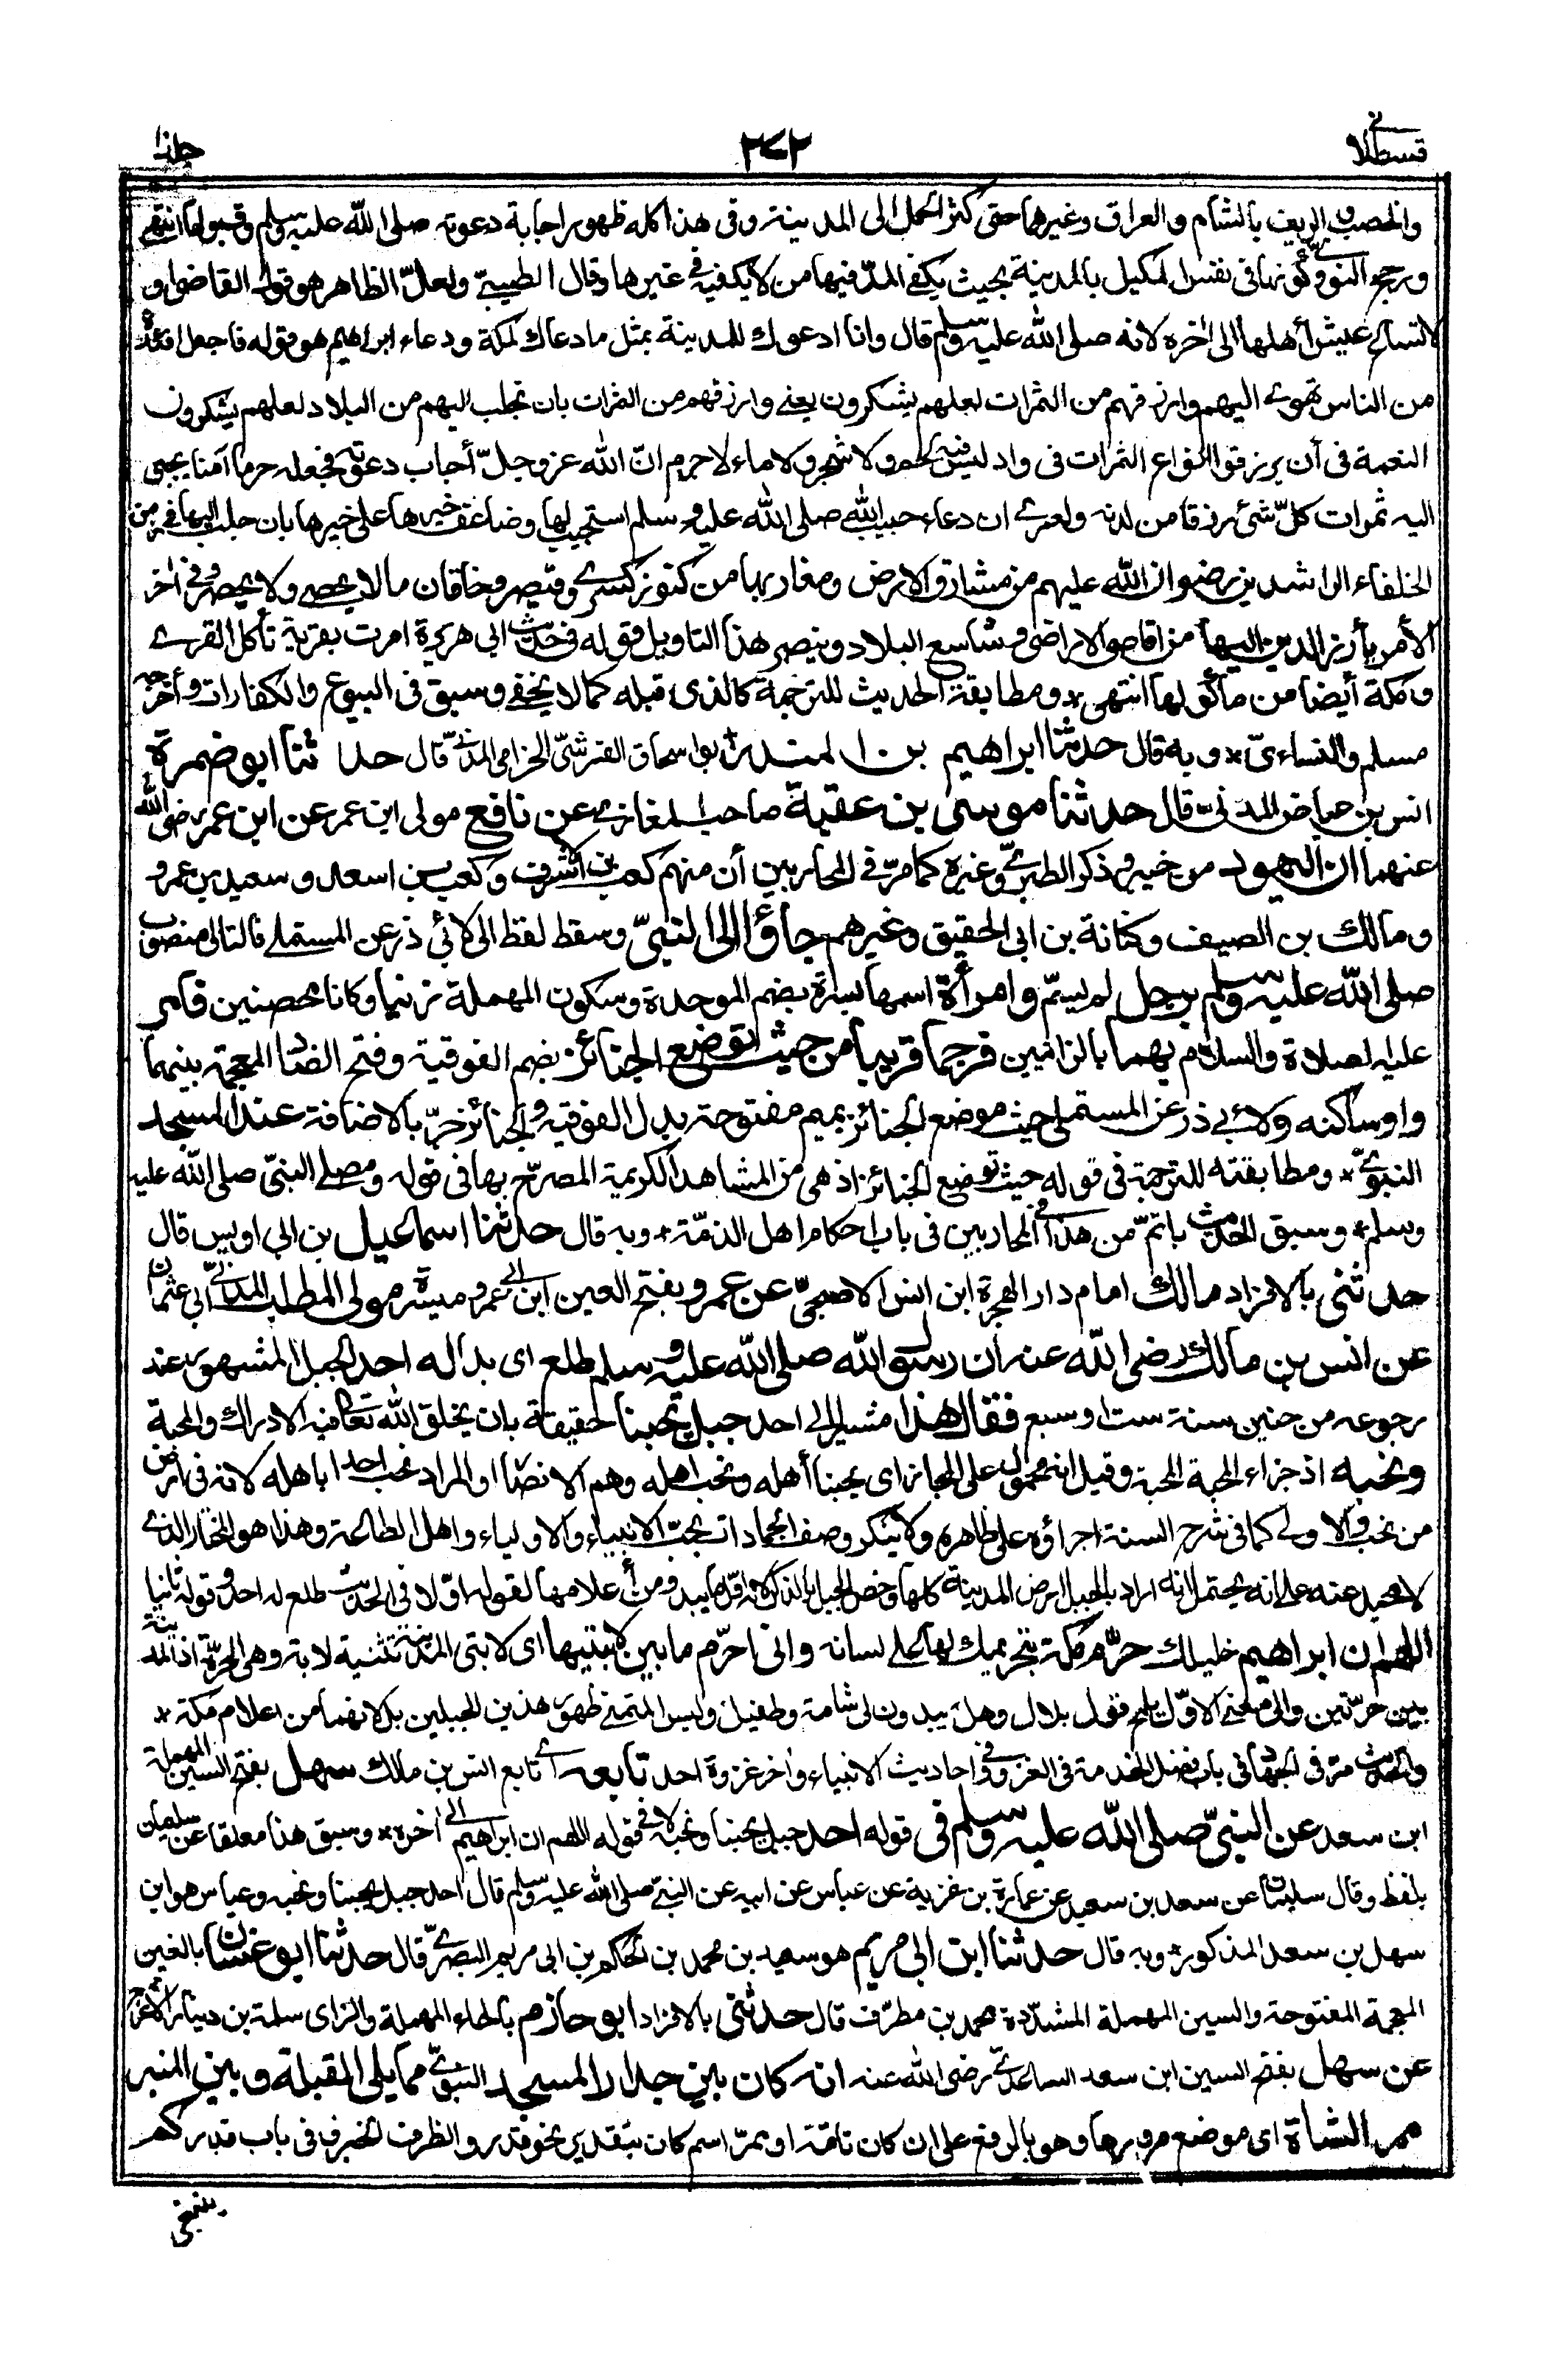 قسطلانى ٢٧٢ جلد١٠
والخصب والريف بالشام والعراق وغيرها حتى كثر الحمل الى المدينة وفى هذا كله ظهور اجابة دعوته صلى الله عليه وسلم وقبولها انتهى
ورجح النووى كونها فى نفس المكيل بالمدينة بحيث يكفى المدّ فيها من لا يكفيه فى غيرها وقال الطيبىّ ولعلّ الظاهر هو قول القاضى او
لاتساع عيش أهلها الى اخره لانه صلى الله عليه وسلم قال وانا ادعوك للمدينة بمثل ما دعاك لمكة ودعاء ابراهيم هو قوله فاجعل افئدة
من الناس تهوى اليهم وارزقهم من الثمرات لعلهم يشكرون يعنى وارزقهم من الثمرات بان تجلب اليهم من البلاد لعلهم يشكرون
النعمة فى أن يرزقوا انواع الثمرات فى واد ليس فيه لحم ولا شجر ولا ماء لا جرم انّ الله عز وجلّ أجاب دعوته فجعله حرما آمنا يجبى
اليه ثمرات كلّ شئ رزقا من لدنه ولعمرى ان دعاء حبيب الله صلى الله عليه وسلم استجيب لها وضاعف خيرها على خيرها بان جلب اليها فى زمن
الخلفاء الراشدين رضوان الله عليهم من مشارق الارض ومغاربها من كنوز كسرى وقيصر وخاقان ما لا يحصى ولا يحصر وفى اخر
الأمر يأرز الدين اليها من اقاصى الاراضى وشاسع البلاد وينصر هذا التاويل قوله فى حديث ابى هريرة امرت بقرية تأكل القرى
ومكة أيضا من مأكولها انتهى * ومطابقة الحديث للترجمة كالذى قبله كما لا يخفى وسبق فى البيوع والكفارات وأخرجه
مسلم والنساءىّ * وبه قال حدثنا ابراهيم بن المنذر ابو اسحاق القرشىّ الحزامى المدنىّ قال حدثنا ابو ضمرة
انس بن عياض المدنى قال حدثنا موسى بن عقبة صاحب المغازى عن نافع مولى ابن عمر عن ابن عمر رضى الله
عنهما ان اليهود من خيبر وذكر الطبرىّ وغيره كما مرّ فى المحاربين أن منهم كعب بن الاشرف وكعب بن اسعد وسعيد بن عمرو
ومالك بن الصيف وكنانة بن ابى الحقيق وغيرهم جاؤا الى النبىّ وسقط لفظ الى لابى ذر عن المستملى فالتالى منصوب
صلى الله عليه وسلم برجل لم يسمّ وامرأة اسمها بسرة بضم الموحدة وسكون المهملة زنيا وكانا محصنين فامر
عليه الصلاة والسلام بهما بالزانيين فرجما قريبا من حيث توضع الجنائز بضم الفوقية وفتح الضاد المعجمة بينهما
واو ساكنه ولابى ذر عن المستملى حيث موضع الجنائز بميم مفتوحة بدل الفوقية والجنائز خرّ بالاضافة عند المسجد
النبوىّ * ومطابقته للترجمة فى قوله حيث توضع الجنائز اذ هى من المشاهد الكريمة المصرّح بها فى قوله ومصلى النبىّ صلى الله عليه
وسلم * وسبق الحديث باتمّ من هذا فى المحاربين فى باب احكام اهل الذمّة * وبه قال حدثنا اسماعيل بن ابى اويس قال
حدثنى بالافراد مالك امام دار الهجرة ابن انس الاصبحىّ عن عمرو بفتح العين ابن ابى عمرو ميسرة مولى المطلب المدنىّ ابى عثمان
عن انس بن مالك رضى الله عنه ان رسول الله صلى الله عليه وسلم طلع اى بدا له احد الجبل المشهور عند
رجوعه من حنين سنة ست او سبع فقال هذا مشيرا الى احد جبل يحبنا حقيقة بان يخلق الله تعالى فيه الادراك والمحبة
ونحبه اذ جزاء المحبة المحبة وقيل انه محمول على المجاز اى يحبنا أهله ونحب اهله وهم الانصار او المراد نحب احدا باهله لانه فى ارض
من نحب والاولى كما فى شرح السنة اجراؤه على ظاهره ولا ينكر وصف الجمادات بحبّ الانبياء والاولياء واهل الطاعة وهذا هو المختار الذى
لا محيد عنه على انه يحتمل انه اراد بالجبل ارض المدينة كلها وخص الجبل بالذكر لانه اوّل ما يبدو من أعلامها لقوله اوّلا فى الحديث طلع له احد وقوله ثانيا
اللهم ان ابراهيم خليلك حرّم مكة بتحريمك لها على لسانه وانى احرّم ما بين لابتيها اى لابتى المدينة تثنية لابة وهى الحرّة اذ المدينة
بين حرّتين والى معنى الاوّل يلمح قول بلال وهل يبدون لى شامة وطفيل وليس المتمنى ظهور هذين الجبلين بل لانهما من اعلام مكة *
والحديث مرّ فى الجهاد فى باب فضل الخدمة فى الغزو وفى احاديث الانبياء واخر غزوة احد تابعه اى تابع انس بن مالك سهل بفتح السين المهملة
ابن سعد عن النبىّ صلى الله عليه وسلم فى قوله احد جبل يحبنا ونحبه لا فى قوله اللهم ان ابراهيم الى أخره * وسبق هذا معلقا عن سليمان
بلفظ وقال سليمان عن سعد بن سعيد عن عمارة بن غزية عن عباس عن ابيه عن النبىّ صلى الله عليه وسلم قال احد جبل يحبنا ونحبه وعباس هو ابن
سهل بن سعد المذكور * وبه قال حدثنا ابن ابى مريم هو سعيد بن محمد بن الحكم بن ابى مريم البصرىّ قال حدثنا ابو غسان بالغين
المعجمة المفتوحة والسين المهملة المشدّدة محمد بن مطرّف قال حدثنى بالافراد ابو حازم بالحاء المهملة والزاى سلمة بن دينار الاعرج
عن سهل بفتح السين ابن سعد الساعدىّ رضى الله عنه انه كان بين جدار المسجد النبوىّ مما يلى القبلة وبين المنبر
ممر الشاة اى موضع مرورها وهو بالرفع على ان كان تامّة او ممرّ اسم كان بتقدير نحو قدر والظرف الخبر فى باب قدر كم
ينبغى